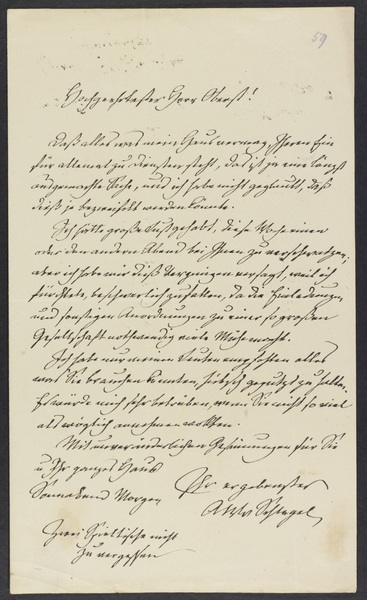 59
Hochgeehrtester Herr Oberst!
Daß alles was mein Haus vermag, Ihnen ein
für allemal zu Diensten steht, das ist ja eine längst
ausgemachte Sache, und ich habe nicht geglaubt, daß
dieß je bezweifelt werden könnte.
Ich hätte große Lust gehabt, diese Woche einen
oder den andern Abend bei Ihnen zu verschwatzen;
aber ich habe mir dieß Vergnügen versagt, weil ich
fürchtete, beschwerlich zu fallen, da die Einladungen
und sonstigen Anordnungen zu einer so großen
Gesellschaft nothwendig viele Mühe macht.
Ich habe nur meinen Leuten empfohlen alles
was Sie brauchen könnten, hübsch geputzt zu halten.
Es würde mich sehr betrüben, wenn Sie nicht so viel
als möglich annehmen wollten.
Mit unveränderlichen Gesinnungen für Sie
u. Ihr ganzes Haus
Ihr ergebenster
Sonnabend Morgen
AWv Schlegel
Zwei Spieltische nicht
zu vergessen